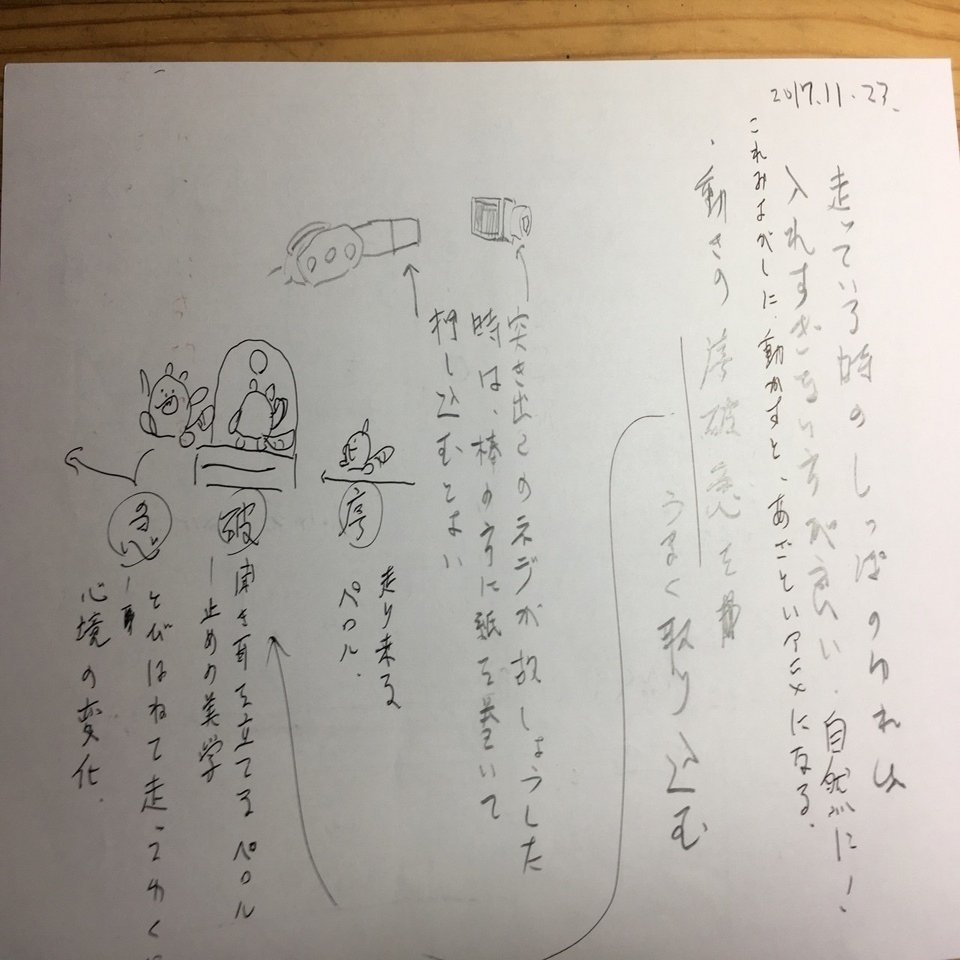 2017.11.23.
走っている時のしっぽのゆれは
入れすぎない方が良い.自然に!
これみよがしに、動かすと、あざといアニメになる.
・動きの序破急を
うまく取り込む
突き出しのネジが故しょうした
時は、棒の方に紙を巻いて
押し込むとよい
序
走り来る
ペロル.
破
聞き耳を立てるペロル
ー止めの美学
急
とびはねて走ってゆく
心境の変化.